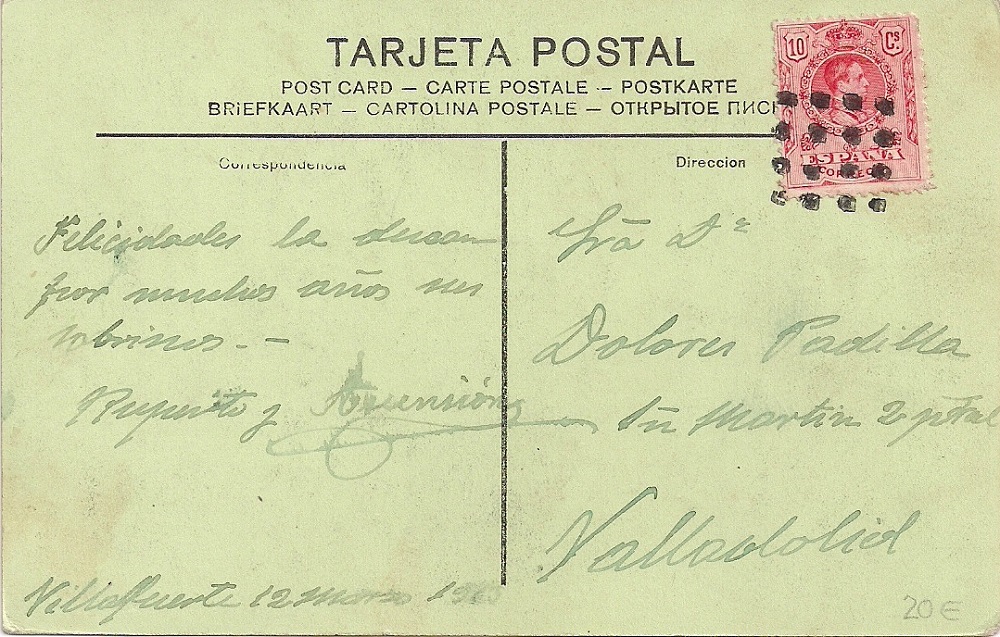 TARJETA POSTAL
POST CARD – CARTE POSTALE – POSTKARTE
BRIEFKAART – CARTOLINA POSTALE – ОТКРЫТОЕ ПИС
Correspondencia
Direccion
10 Cs.
ESPAÑA
CORREOS
Felicidades la desean
por muchos años sus
sobrinos.-
Ruperto y Asunción
Villafuerte 12 marzo
Sra Dª
Dolores Padilla
Sn Martin 2 ptal
Valladolid
20€